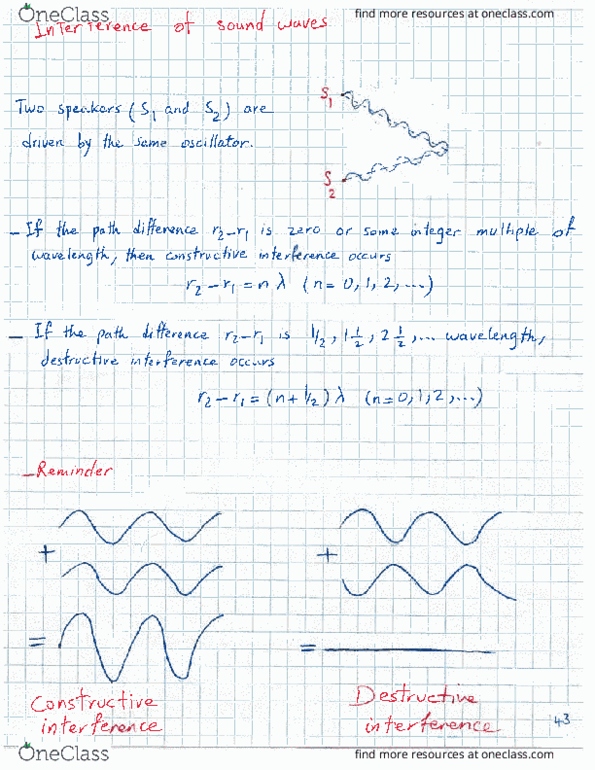 OneClass
find more resources at oneclass.com
Interference of sound waves
S1
Two speakers (S1 and S2) are
driven by the same oscillator.
S2
- If the path difference r2-r1 is zero or some integer multiple of
wavelength, then constructive interference occurs
r2-r1 = n λ (n= 0, 1, 2, ...)
- If the path difference r2-r1 is 1/2, 1 1/2, 2 1/2, ... wavelength,
destructive interference occurs
r2-r1 = (n+1/2) λ (n=0, 1, 2, ...)
-Reminder
+ +
= =
Constructive Destructive
interference interference
43
OneClass
find more resources at oneclass.com